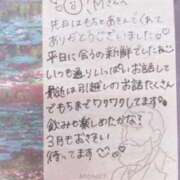 Mさん
本日はもちとあきんでくれて
ありがとうございました♡
平日に会うの新鮮でしたね
いっも通りしっぱいお話して
最後は引越しのお話たくさん
でもうまでワクワクしてます
飲みも楽しめたかな？
3月もおさそい
待ってます♡